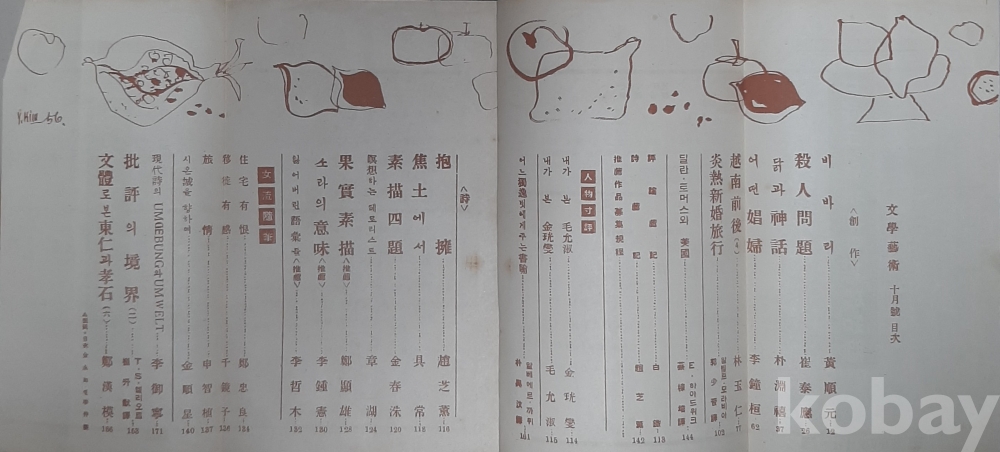 文學藝術 十月號目次
<創作>
비바리 黃順元 12
殺人問題 崔泰應 24
닭과 神話 朴淵禧 37
어떤 娼婦 李鐘桓 62
越南前後 林玉仁 77
炎熱新婚旅行 알벨토·모라비아 102
딜란·토머스와 美國 144
評論薦記 白鐵 113
詩薦記 趙芝薰 142
推薦作品募集規程
人物寸評
내가 본 毛允淑 金珖燮 114
내가 본 金珖燮 毛允淑 115
어느 獨逸벗에게 주는 書翰 알베에르·까뮈 101
<詩>
抱擁 趙芝薰 116
焦土에서 具常 118
素描四題 金春洙 120
瞑想하는 테로리스트 章湖 124
果實素描<推薦> 鄭顯雄 128
소라의 意味<推薦> 李鍾憲 130
잃어버린 語彙들<推薦> 李哲木 132
女流隨筆
住宅有恨 鄭忠良 134
移徙有感 千鏡子 136
旅情 申智植 137
시온城을 향하여 金順星 140
現代詩의 UMGEBUNG과 UMWELT 李御寧 171
批評의 境界(二) T·S·엘리오트
文體로 본 東仁과 孝石(六) 鄭漢模 166
Y.KIM 56.
kobay